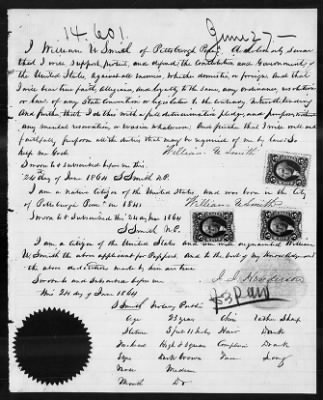 14.601.
June 27 —
I William U Smith of Pittsburgh Penn. do solemnly swear
that I will support, protect, and defend the Constitution and Government of
the United States, against all enemies, whether domestic or foreign. And that
I will bear true faith, allegiance, and loyalty to the same, any ordinance, resolution
or law of any State Convention or Legislature to the contrary notwithstanding.
And further that I do this with a full determination, pledge, and purpose, without
any mental reservation or evasion whatsoever. And further that I will well and
faithfully perform all the duties that may be required of me by law. So
help me God.
William U Smith
Sworn to & subscribed before me this
24th day of June 1864 S Smith N.P.
I am a native Citizen of the United States, and was born in the City
of Pittsburgh Penn in 1841
William U Smith
Sworn to & Subscribed this 24 June 1864
S Smith N.P.
I am a Citizen of the United States and am well acquainted William
U Smith the above applicant for Passport. And to the best of my Knowledge
the above made by him are true
Sworn to and Subscribed before me
this 24 day of June 1864
$3 Paid
S Smith Notary Public
Age 23 years Chin Rather Sharp
Stature 5 feet 11 Inches Hair Dark
Forehead High & Square Complexion Dark
Eyes Dark Brown Face Long
Nose Medium
Mouth Do